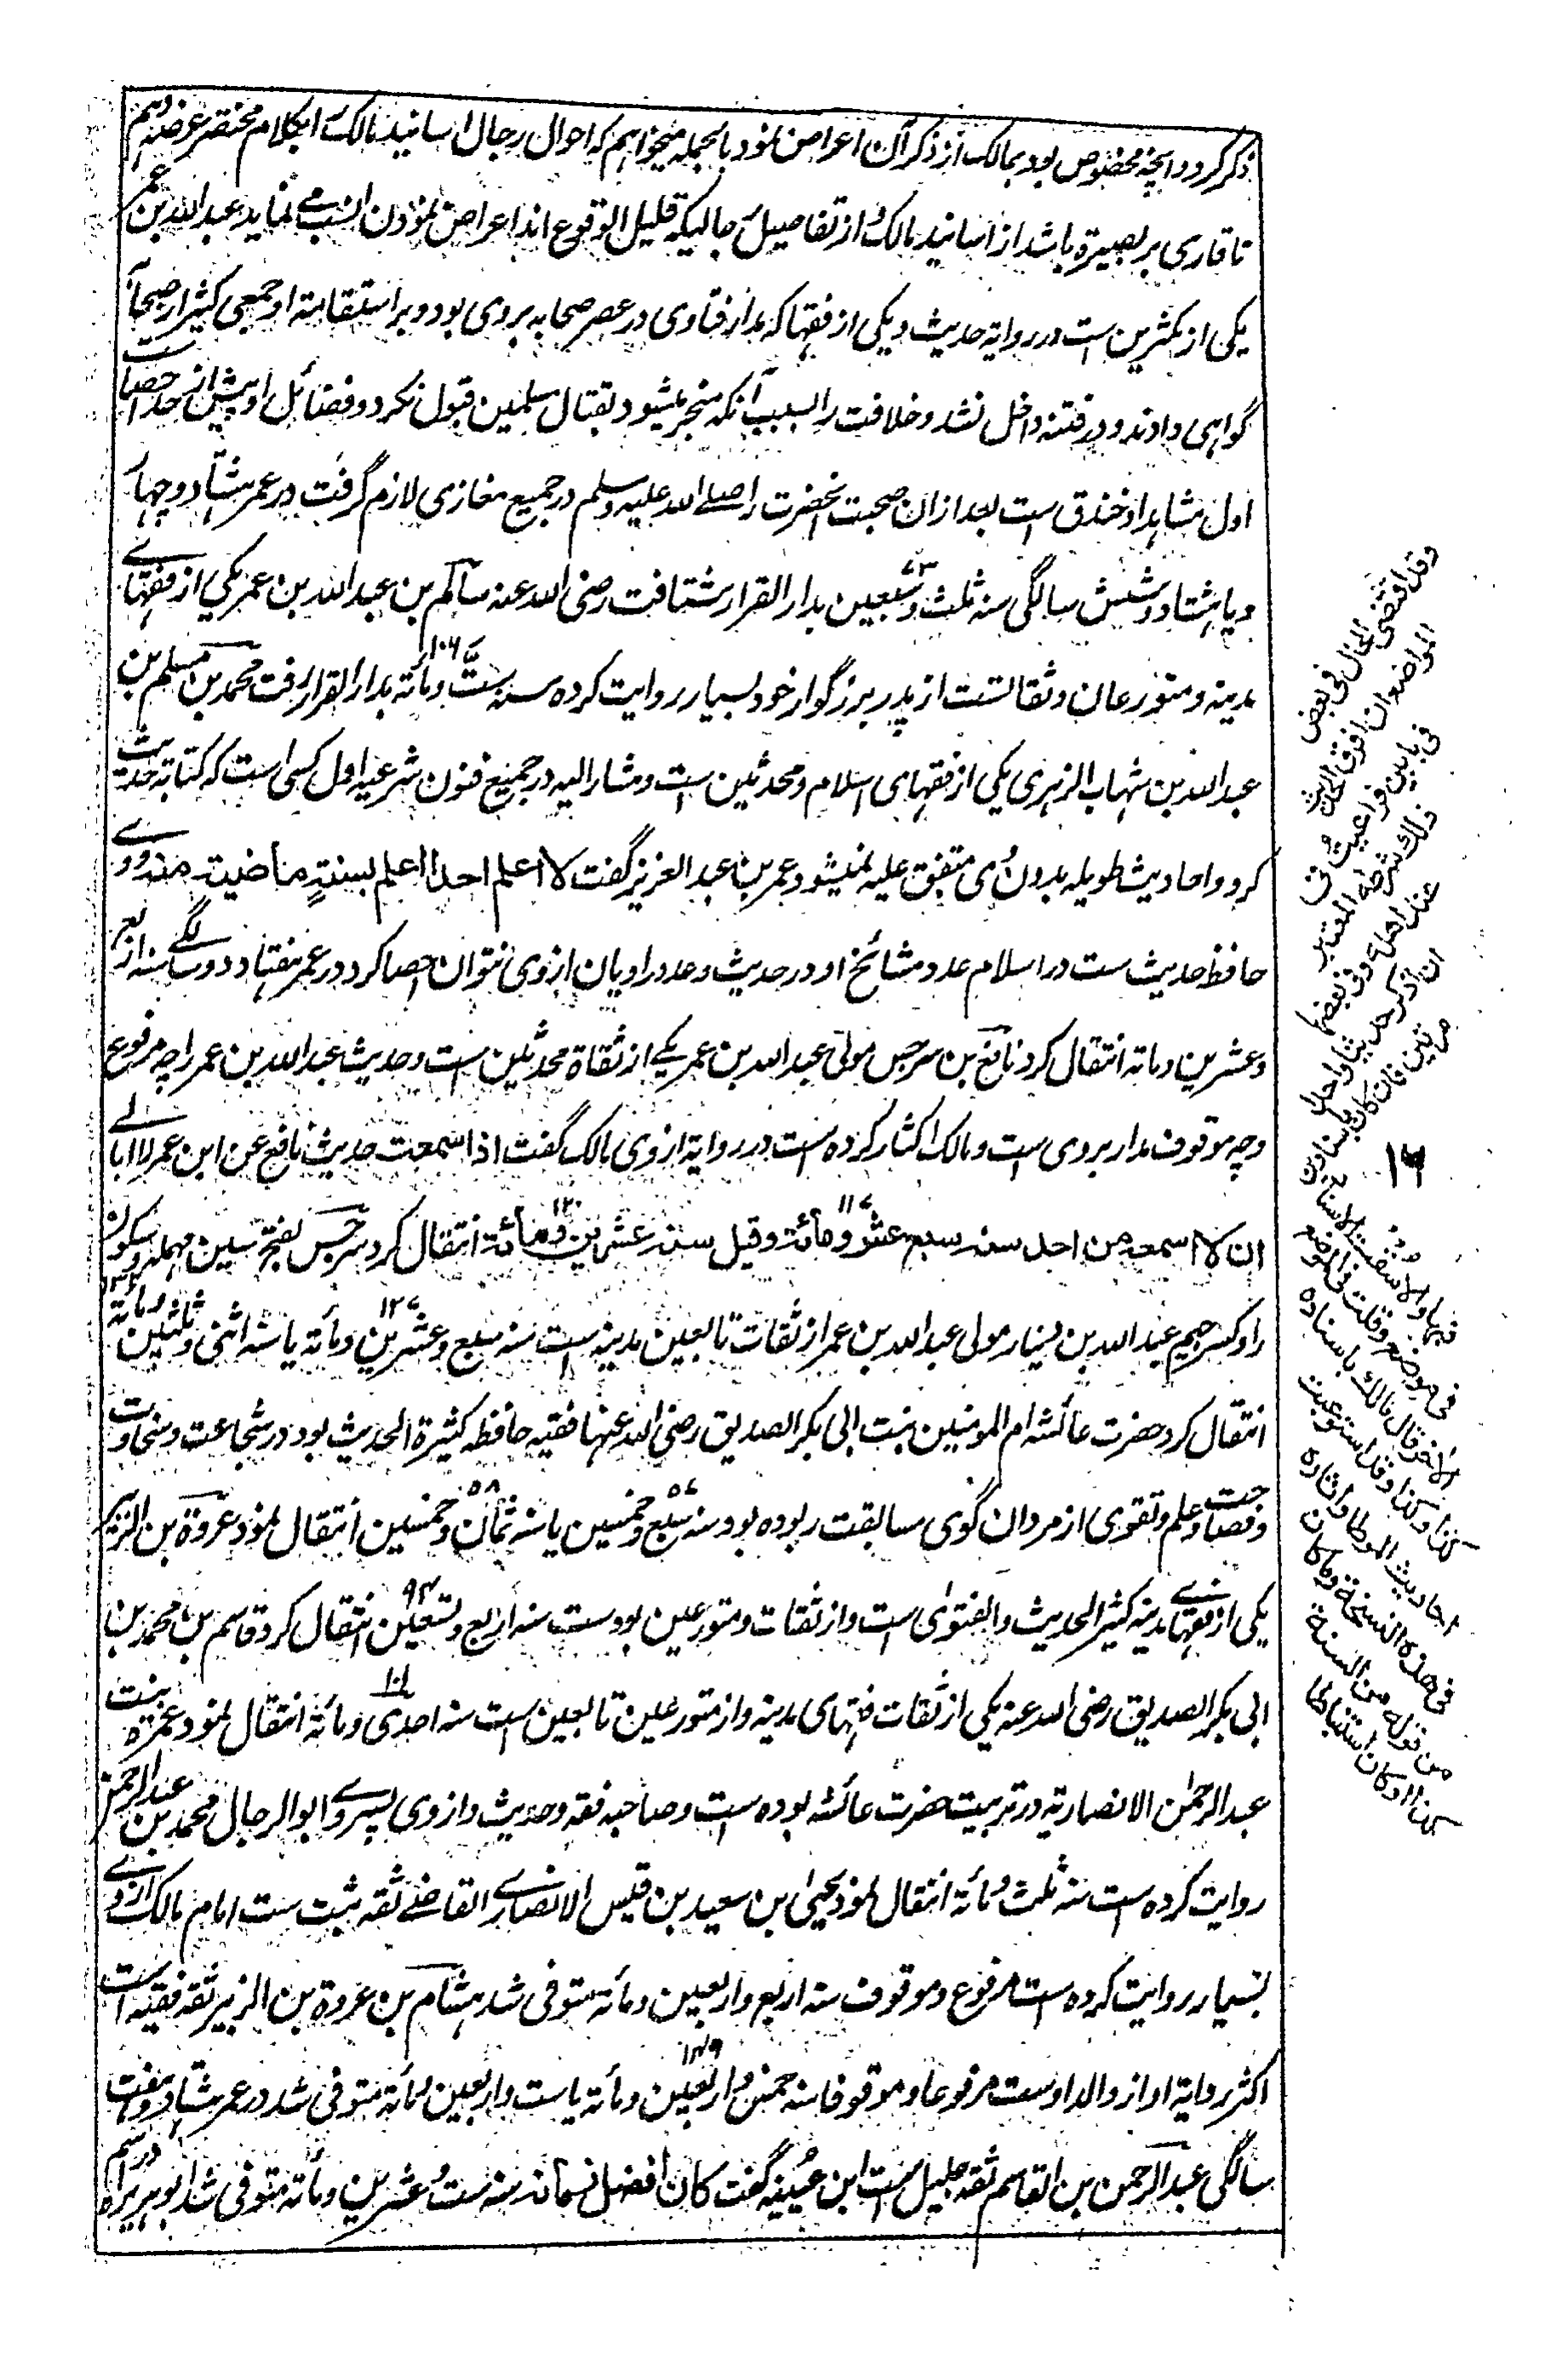 ذکر کرد و آنچه مخصوص بود بمالک از ذکر آن اعراض نمود بالجمله میخواهم که احوال رجال اسانید مالک را بکلام مختصر عرضه دهم
تا قاری بر بصیرة باشد از اسانید مالک و از تفاصیل رجالیکه قلیل الوقوع اند اعراض نمودن انسب می نماید عبد الله بن عمر
یکی از مکثرین ست در روایة حدیث و یکی از فقها که مدار فتاوی در عصر صحابه بر وی بود و بر استقامة او جمعی کثیر از صحابه
گواهی دادند و در فتنه داخل نشد و خلافت را بسبب آنکه منجر میشود بقتال مسلمین قبول نکرد و فضائل او بیش از حد احصا ست
اول مشاهد او خندق ست بعد ازان صحبت آنحضرت را صلے الله علیه وسلم در جمیع مغازی لازم گرفت در عمر هشتاد و چهار
و یا هشتاد و شش سالگی سنه ثلث و سبعین ۷۳ بدار القرار شتافت رضی الله عنه سالم بن عبد الله بن عمر یکی از فقهای
مدینه و متورعان و ثقات ست از پدر بزرگوار خود بسیار روایت کرده سنه ست و مائة ۱۰۶ بدار القرار رفت محمد بن مسلم بن
عبد الله بن شهاب الزهری یکی از فقهای اسلام و محدثین ست و مشار الیه در جمیع فنون شرعیه اول کسی است که کتابه حدیث
کرد و احادیث طویله بدون وی متفق علیه نمیشود عمر بن عبد العزیز گفت لا اعلم احدا اعلم بسنةٍ ماضیة منه و وی
حافظ حدیث ست در اسلام عدد مشائخ او در حدیث و عدد راویان از وی نتوان احصا کرد در عمر هفتاد و دو سالگے سنه اربع
وعشرین و مائة انتقال کرد نافع بن سرجس مولی عبد الله بن عمر یکے از ثقاة محدثین ست و حدیث عبد الله بن عمر را چه مرفوع
و چه موقوف مدار بر وی ست و مالک اکثار کرده ست در روایة از وی مالک گفت اذا سمعت حدیث نافع عن ابن عمر لا ابالے
ان لا اسمعه من احد سنه سبع عشر و مائة ۱۱۷ وقیل سنه عشرین و مائة ۱۲۰ انتقال کرد سرجس بفتح سین مهمله و سکون
را و کسر جیم عبد الله بن دینار مولی عبد الله بن عمر از ثقات تابعین مدینه ست سنه سبع و عشرین و مائة ۱۲۷ یا سنه اثنی و ثلثین و مائة ۱۳۲
انتقال کرد حضرت عائشه ام المومنین بنت ابی بکر الصدیق رضی الله عنها فقیه حافظه کثیرة الحدیث بود در شجاعت و سخاوت
و فصاحت و علم و تقوی از مردان گوی سابقت ربوده بود سنه سبع و خمسین ۵۷ یا سنه ثمان و خمسین ۵۸ انتقال نمود عروة بن الزبیر
یکی از فقهای مدینه کثیر الحدیث و الفتوی است و از ثقات و متورعین بود ست سنه اربع و تسعین ۹۴ انتقال کرد قاسم بن محمد بن
ابی بکر الصدیق رضی الله عنه یکی از ثقات فقهای مدینه و از متورعین تابعین ست سنه احدی و مائة ۱۰۱ انتقال نمود عمره بنت
عبد الرحمٰن الانصاریة در تربیت حضرت عائشه بوده ست و صاحبه فقه و حدیث و از وی پسر وے ابو الرجال محمد بن عبد الرحمن
روایت کرده ست سنه ثلث و مائة انتقال نمود یحیی بن سعید بن قیس الانصاری القاضے ثقه ثبت ست امام مالک از وی
بسیار روایت کرده ست مرفوع و موقوف سنه اربع و اربعین و مائة متوفی شد هشام بن عروة بن الزبیر ثقه فقیه است
اکثر روایة او از والد اوست مرفوعا و موقوفا سنه خمس و اربعین و مائة یا ست و اربعین و مائة ۱۴۶ متوفی شد در عمر هشتاد و هفت
سالگی عبد الرحمن بن القاسم ثقه جلیل ست ابن عیینه گفت کان افضل زمانه سنه ست و عشرین و مائة متوفی شد ابو هریره در اسم
وقد اقتضی الحال فی بعض
المواضع ان افرق الحدیث
فی بابین فراعیت فی
ذلک شرطه المعتبر
عند اهله وفی بعضها
ان اذکر حدیثا واحدا
مرتین فان کان باسنادین
۱۶
فبها والا سقت الاسناد
فی موضع وقلت فی الموضع
الآخر قال مالک باسناده
کذا وکذا وقد استوعبت
احادیث الموطا و آثاره
فی هذه النسخة وما کان
من قوله من السنة
کذا او کان استنباطا